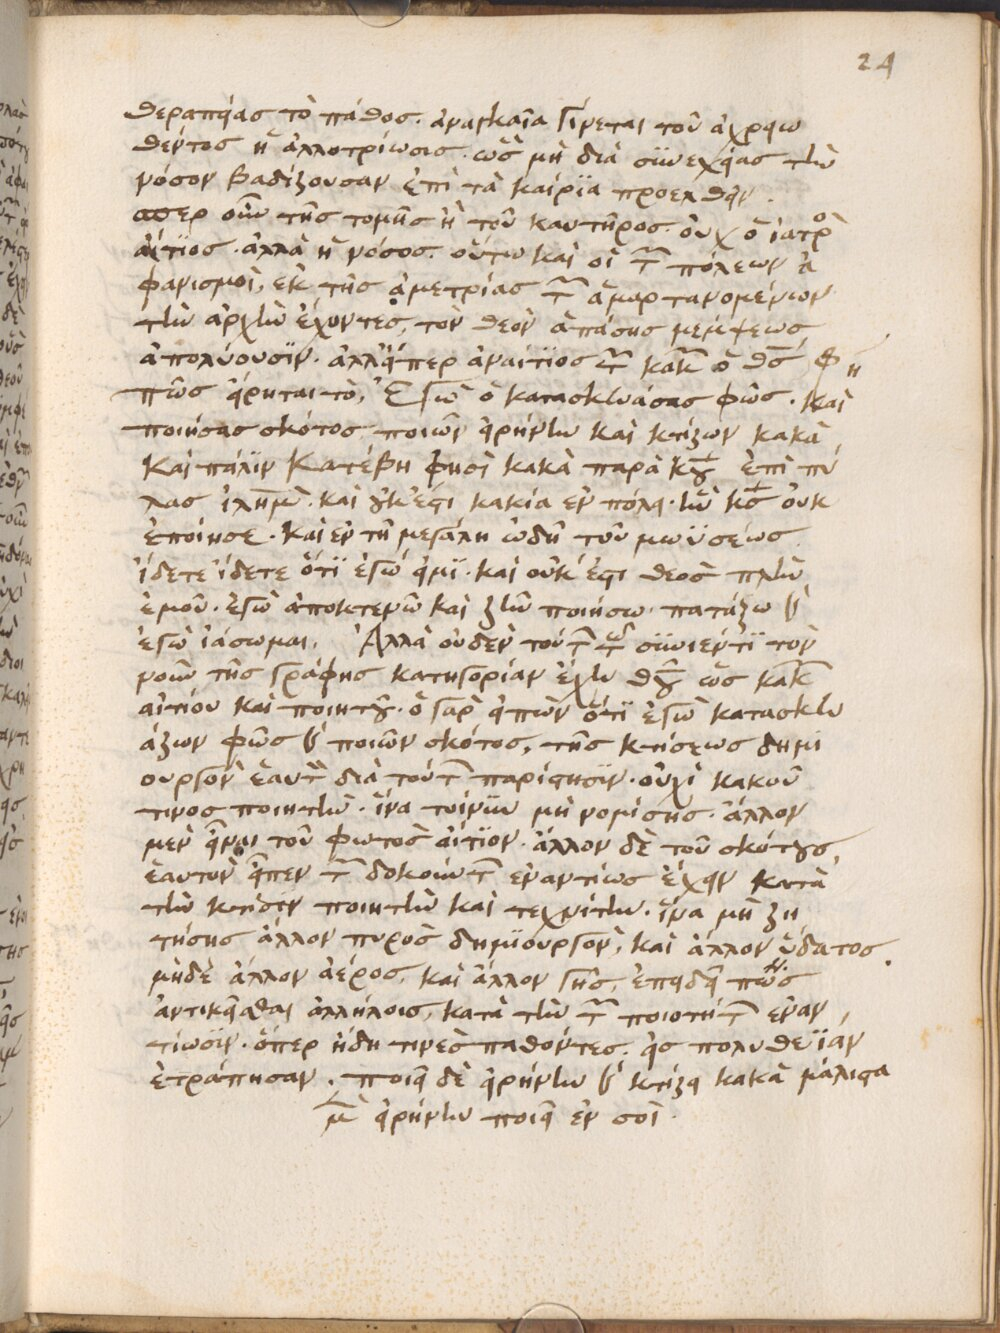 24
θεραπείας τὸ πάθος. ἀναγκαῖα γίνεται τοῦ ἀχρειω
θέντος ἡ ἀλλοτρίωσις. ὡς μὴ διὰ συνεχείας τὴν
νόσον βαδίζουσαν ἐπὶ τὰ καίρϊα προελθεῖν.
ὥσπερ οὖν τῆς τομῆς ἢ τοῦ καυτῆρος οὐχ ὁ ἰατρὸς
αἴτϊος. ἀλλὰ ἡ νόσος. οὕτω καὶ οἱ τῶν πόλεων ἀ
φανισμοὶ, ἐκ τῆς ἀμετρίας τῶν ἁμαρτανομένων
τὴν ἀρχὴν ἔχοντες, τὸν θεὸν ἁπάσης μέμψεως
ἀπολύουσϊν. ἀλλ' εἴπερ ἀναίτϊος τῶν κακῶν ὁ θς φη
πῶς εἴρηται τὸ, Ἐγὼ ὁ κατασκευάσας φῶς. καὶ
ποιήσας σκότος ποιῶν εἰρήνην καὶ κτίζων κακὰ,
Καὶ πάλϊν Κατέβη φησὶ κακὰ παρὰ κυ ἐπὶ πύ
λας ἱλημ. καὶ οὐκ ἔστι κακία ἐν πόλει. ἣν κς οὐκ
ἐποίησε. Καὶ ἐν τῇ μεγάλη ᾠδῇ τοῦ μωϋσέως
ἴδετε ἴδετε ὅτϊ ἐγώ εἰμϊ. καὶ οὐκ ἔστι θεὸς πλὴν
ἐμοῦ. ἐγὼ ἀποκτενῶ καὶ ζῆν ποιήσω. πατάξω καὶ
ἐγὼ ἰάσωμαι. Ἀλλὰ οὐδὲν τούτων τῷ συνιέντϊ τὸν
νοῦν τῆς γραφῆς κατηγορίαν ἔχει θυ ὡς κακῶν
αἰτίου καὶ ποιητοῦ. ὁ γὰρ εἰπὼν ὅτϊ ἐγὼ κατασκευ
άζων φῶς καὶ ποιῶν σκότος, τῆς κτίσεως δημϊ
ουργὸν ἑαυτὸν διὰ τούτων παρίστησϊν. οὐχὶ κακοῦ
τινος ποιητὴν. ἵνα τοίνυν μὴ νομίσης. ἄλλον
μὲν εἶναι τοῦ φωτὸς αἴτϊον. ἄλλον δὲ τοῦ σκότους,
ἑαυτὸν εἶπεν τῶν δοκούντων ἐναντίως ἔχειν κατὰ
τὴν κτίσϊν ποιητὴν καὶ τεχνίτην. ἵνα μὴ ζη
τήσης ἄλλον πυρὸς δημϊουργὸν, καὶ ἄλλον ὕδατος.
μηδὲ ἄλλον ἀέρος, καὶ ἄλλον γῆς, ἐπειδεῖ πῶς
ἀντικεῖσθαι ἀλλήλοις, κατὰ τὴν τῶν ποιοτήτων ἐναν,
τίωσϊν. ὅπερ ἤδη τινὲς παθόντες. εἰς πολυθεϊαν
ἐτράπησαν. ποιεῖ δὲ εἰρήνην καὶ κτίζει κακὰ μάλιστα
μὲν εἰρήνην ποιεῖ ἐν σοί.